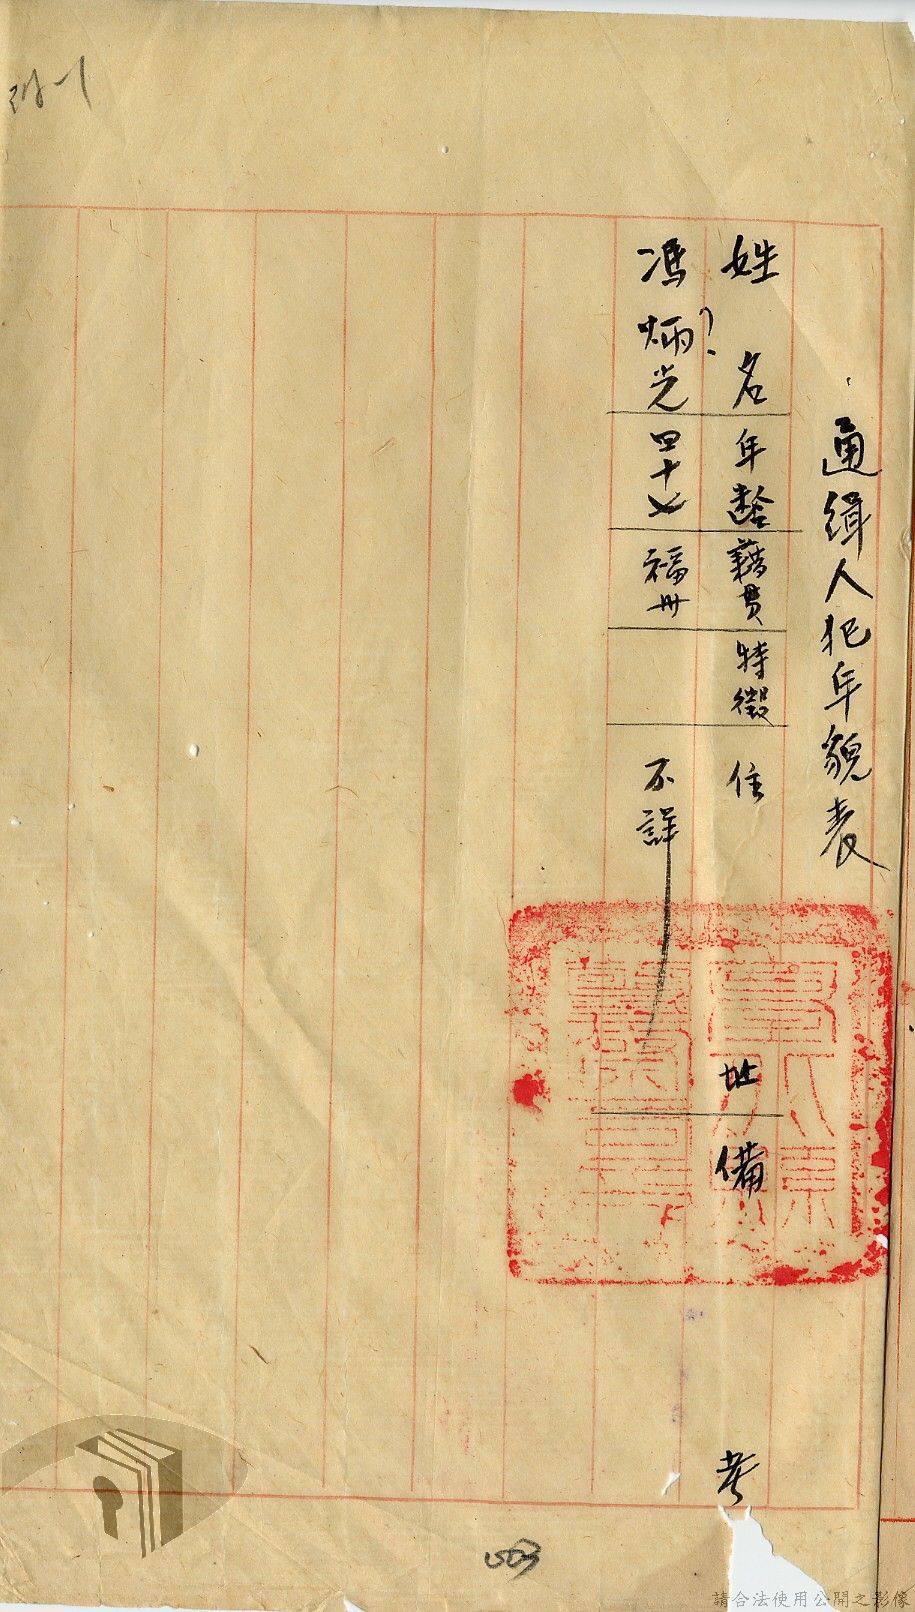 通緝人犯年貌表
姓名 年齡 籍貫 特徵 住址 備考
馮炳光 四十七 福州 不詳
?
563
請合法使用公開之影像